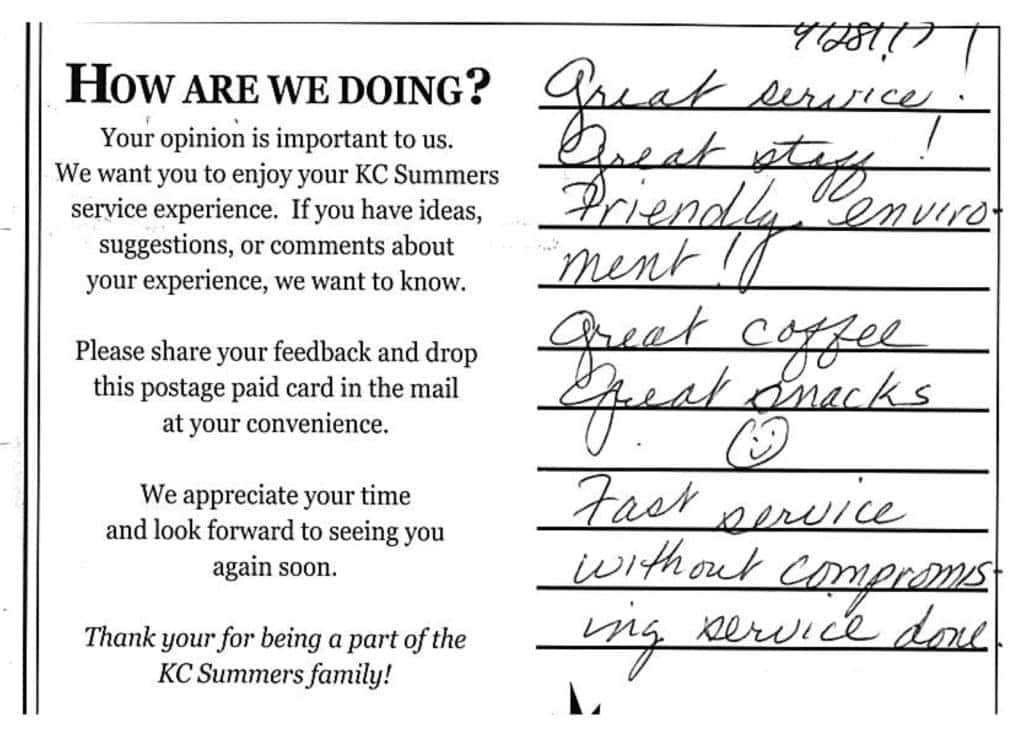 HOW ARE WE DOING?
Your opinion is important to us.
We want you to enjoy your KC Summers
service experience. If you have ideas,
suggestions, or comments about
your experience, we want to know.
Please share your feedback and drop
this postage paid card in the mail
at your convenience.
We appreciate your time
and look forward to seeing you
again soon.
Thank your for being a part of the
KC Summers family!
4/28/17
Great service!
Great staff!
Friendly enviro-
ment!
Great coffee
Great snacks
Fast service
without compromis-
ing service done.